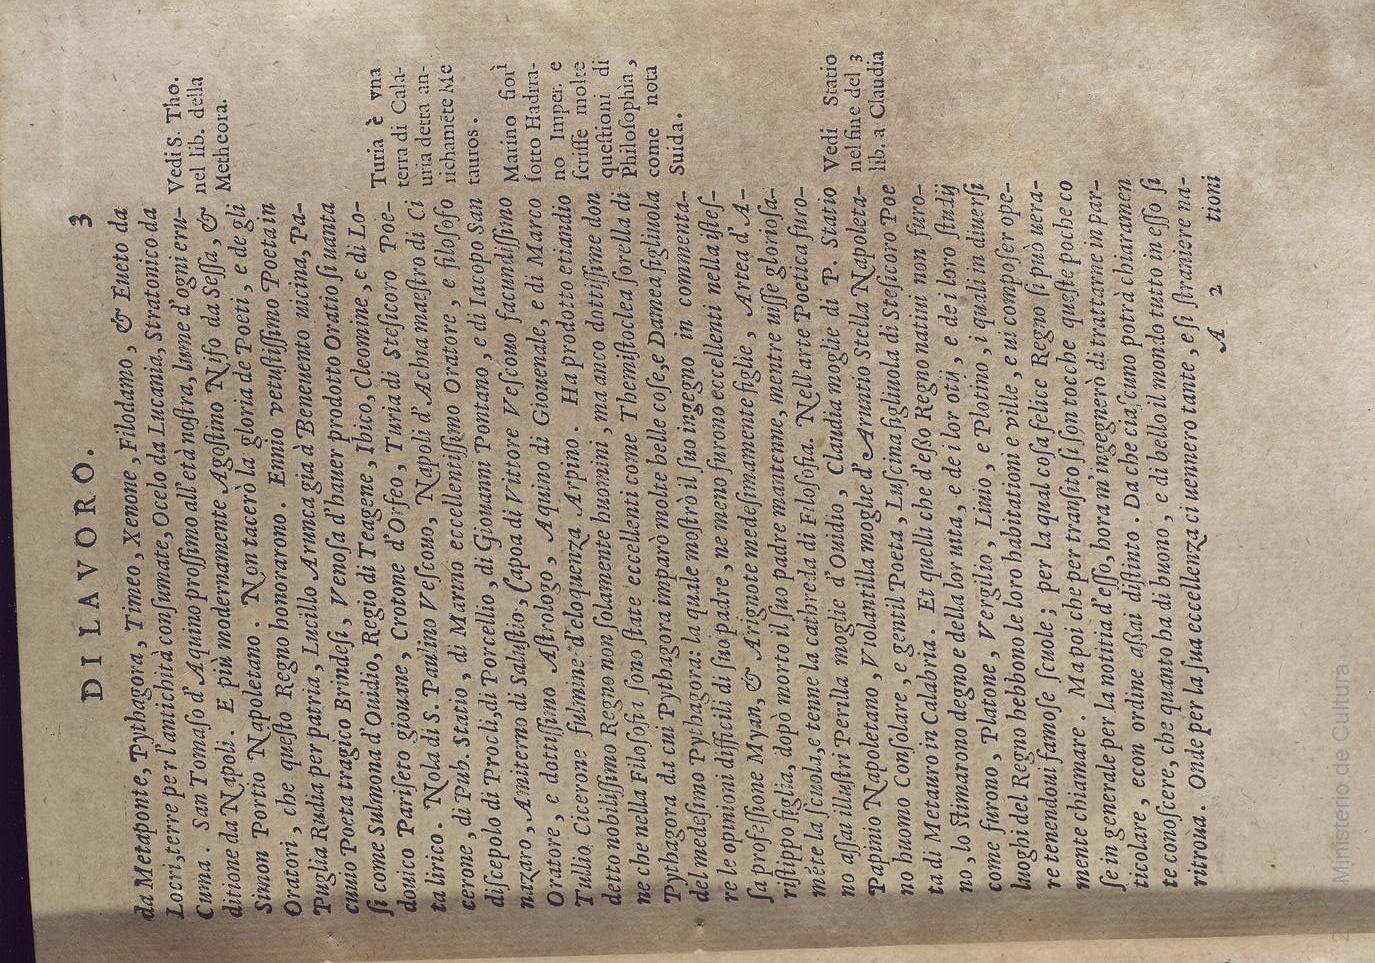 DI LAVORO. 3
da Metaponte, Pythagora, Timeo, Xenone, Filodamo, & Eueto da
Locri, terre per l'antichità consumate, Ocelo da Lucania, Stratonico da
Cuma. San Tomaso d'Aquino prossimo all'età nostra, lume d'ogni eru-
ditione da Napoli. E più modernamente Agostino Nifo da Sessa, &
Simon Portio Napoletano. Non tacerò la gloria de Poeti, e de gli
Oratori, che questo Regno honorarono. Ennio vetustissimo Poeta in
Puglia Rudia per patria, Lucillo Arunca già à Beneuento uicina, Pa-
cuuio Poeta tragico Brindesi, Venosa d'hauer prodotto Oratio si uanta
si come Sulmona d'Ouidio, Regio di Teagene, Ibico, Cleomine, e di Lo-
douico Pariseto giouane, Crotone d'Orfeo, Turia di Stesicoro Poe-
ta lirico. Nola di S. Paulino Vescouo, Napoli d'Achia maestro di Ci
cerone, di Pub. Statio, di Marno eccellentissimo Oratore, e filosofo
discepolo di Procli, di Porcellio, di Giouanni Pontano, e di Iacopo San
nazaro, Amiterno di Salustio, Capoa di Vittore Vescouo facundissimo
Oratore, e dottissimo Astrologo, Aquino di Giouenale, e di Marco
Tullio Cicerone fulmine d'eloquenza Arpino. Ha prodotto etiandio
detto nobilissimo Regno non solamente huomini, ma anco dottissime don
ne che nella Filosofia sono state eccellenti come Themistoclea sorella di
Pythagora da cui Pythagora imparò molte belle cose, e Damea figliuola
del medesimo Pythagora: la quale mostrò il suo ingegno in commenta-
re le opinioni difficili di suo padre, ne meno furono eccellenti nella istes-
sa professione Myan, & Arignote medesimamente figlie, Artea d'A-
ristippo figlia, dopò morto il suo padre mantenne, mentre uisse gloriosa-
mẽte la scuola, e tenne la cathreda di Filosofia. Nell'arte Poetica furo-
no assai illustri Perilla moglie d'Ouidio, Claudia moglie di P. Statio
Papinio Napoletano, Violantilla moglie d'Aruntio Stella Napoleta-
no huomo Consolare, e gentil Poeta, Luscina figliuola di Stesicoro Poe
ta di Metauro in Calabria. Et quelli che d'esso Regno natiui non furo-
no, lo stimarono degno e della lor uita, e de i lor otij, e de i loro studij
come furono, Platone, Vergilio, Liuio, e Plotino, i quali in diuersi
luoghi del Regno hebbono le loro habitationi e ville, e ui composer ope-
re tenendoui famose scuole; per la qual cosa felice Regno si può uera-
mente chiamare. Ma poi che per transito si son tocche queste poche co
se in generale per la notitia d'esso, hora m'ingegnerò di trattarne in par-
ticolare, e con ordine assai distinto. Da che ciascuno potrà chiaramen
te conoscere, che quanto ha di buono, e di bello il mondo tutto in esso si
ritroua. Onde per la sua eccellenza ci uennero tante, e sì straniere na-
A 2 tioni
Vedi S. Tho.
nel lib. della
Metheora.
Turia è vna
terra di Cala-
uria detta an-
richamẽte Me
tauros.
Marino fiorì
sotto Hadria-
no Imper. e
scrisse molte
questioni di
Philosophia,
come nota
Suida.
Vedi Statio
nel fine del 3
lib. a Claudia
Ministerio de Cultura